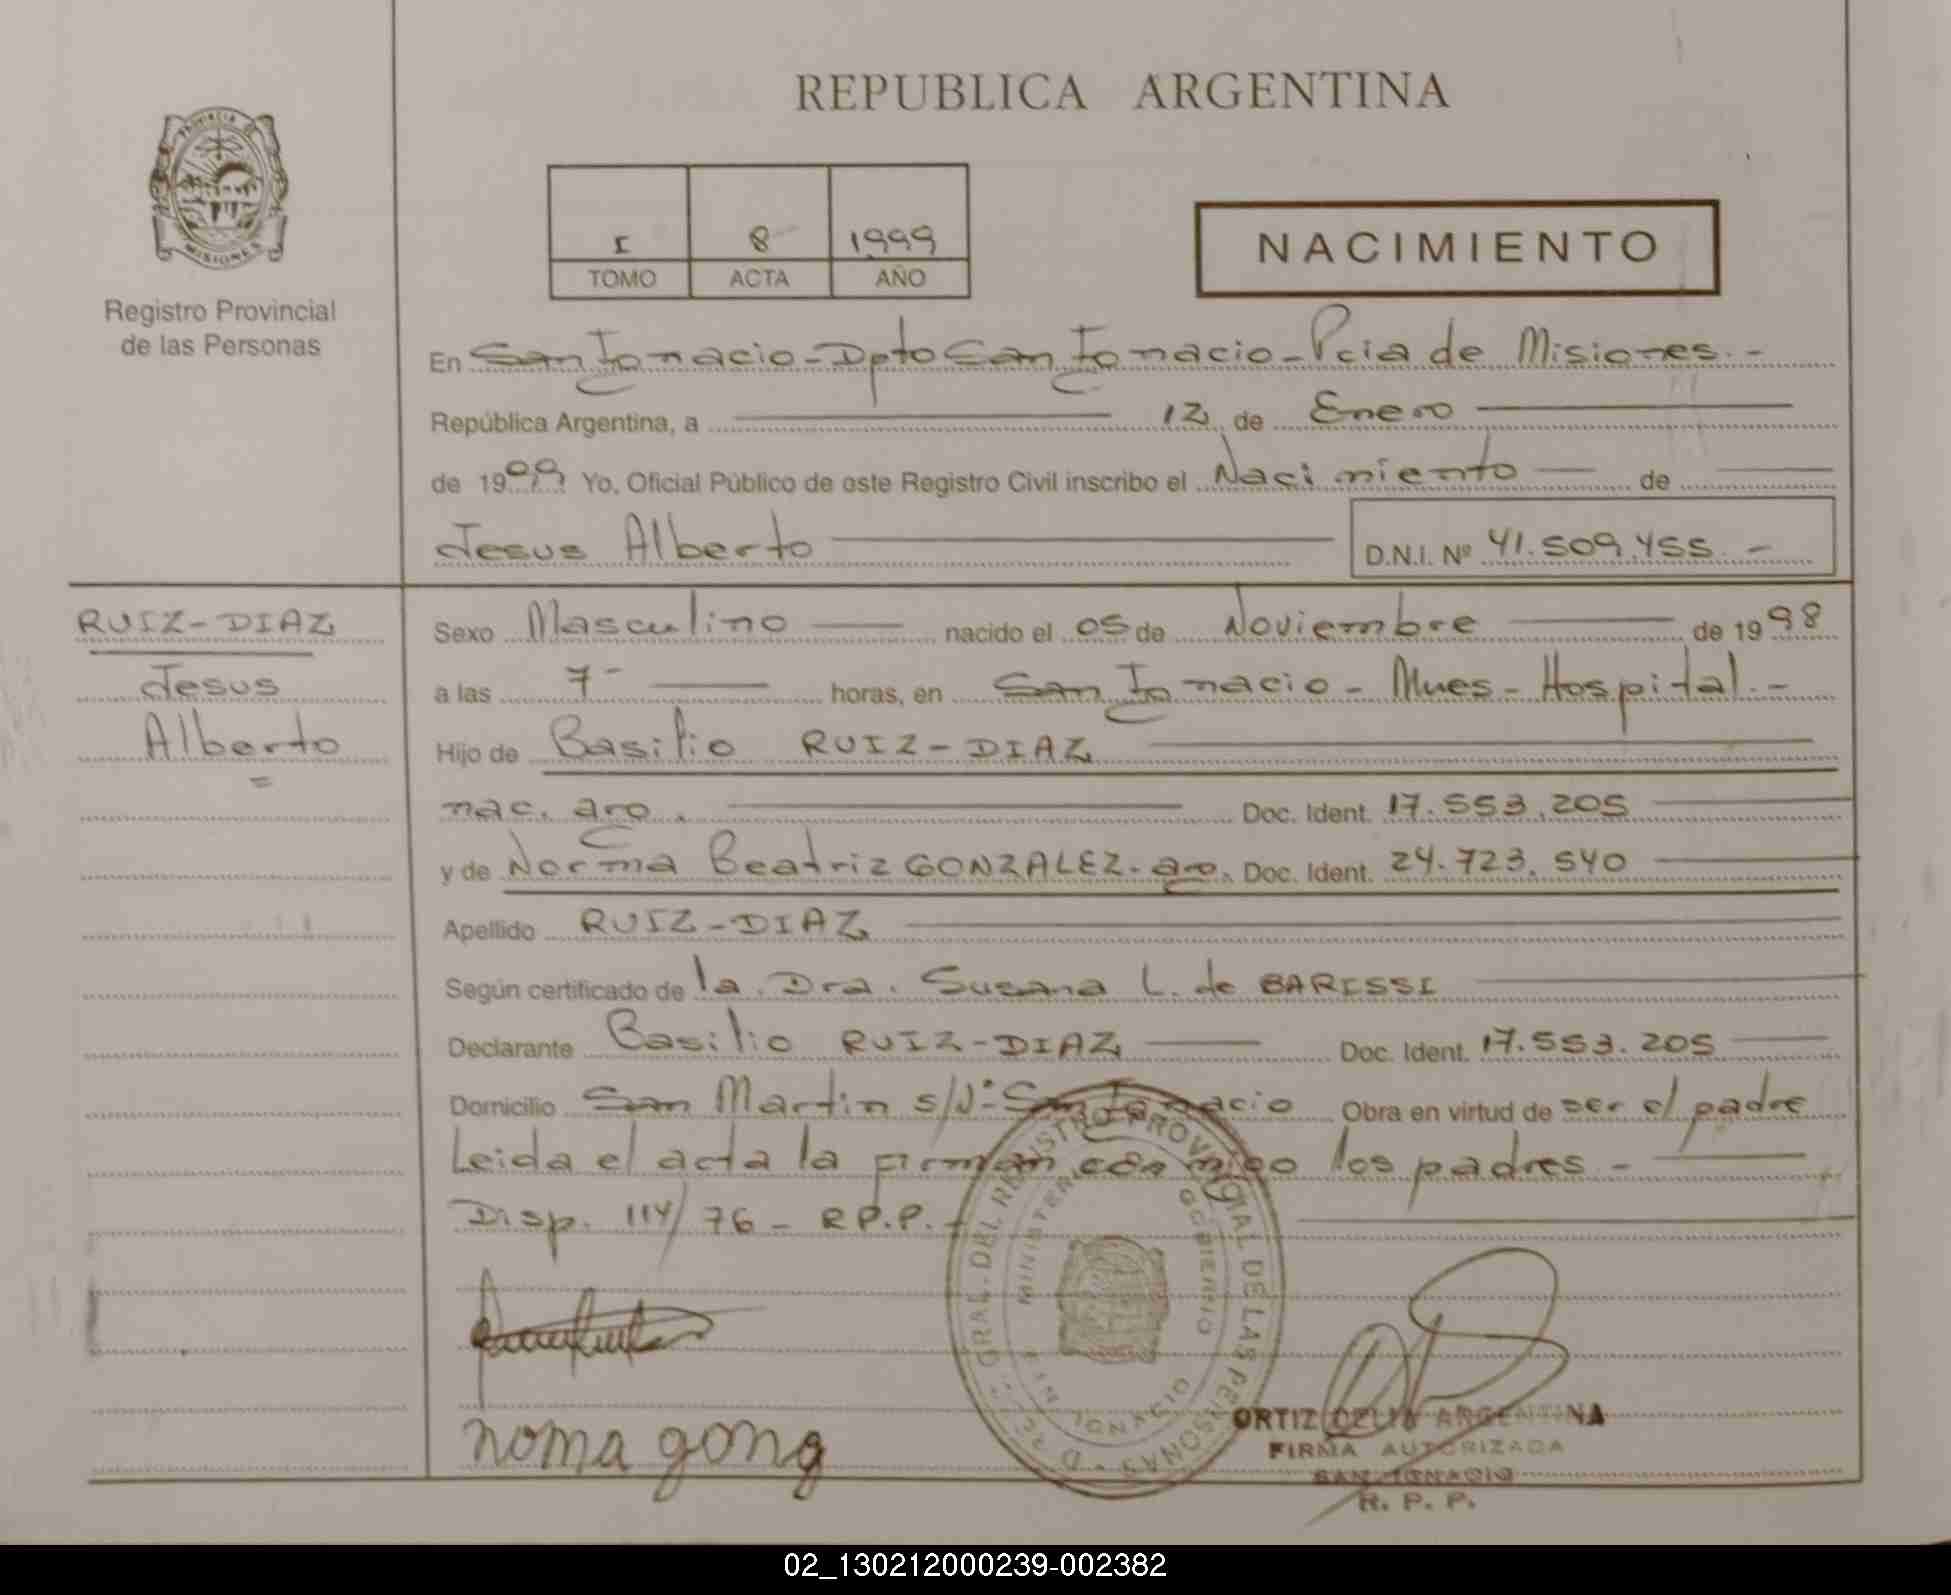 REPUBLICA ARGENTINA
PROVINCIA DE
MISIONES
Registro Provincial
de las Personas
I 8 1999
TOMO ACTA AÑO
NACIMIENTO
En San Ignacio - Dpto San Ignacio - Pcia de Misiones. -
República Argentina, a 12 de Enero
de 1999 Yo, Oficial Público de este Registro Civil inscribo el Nacimiento de
Jesus Alberto D.N.I. Nº 41.509.455. -
RUIZ-DIAZ
Jesus
Alberto
=
Sexo Masculino nacido el 05 de Noviembre de 1998
a las 7- horas, en San Ignacio - Mnes - Hospital. -
Hijo de Basilio RUIZ-DIAZ
nac. arg. Doc. Ident. 17.553.205
y de Norma Beatriz GONZALEZ - arg. Doc. Ident. 24.723.540
Apellido RUIZ-DIAZ
Según certificado de la Dra. Susana L. de BARISSI
Declarante Basilio RUIZ-DIAZ Doc. Ident. 17.553.205
Domicilio San Martin s/Nº San Ignacio Obra en virtud de ser el padre
Leida el acta la firman conmigo los padres. -
Disp. 114/76 - R.P.P. -
GRAL. DEL REGISTRO PROVINCIAL DE LAS PERSONAS
MINISTERIO GOBIERNO
IGNACIO
noma gong
ORTIZ CELIA ARGENTINA
FIRMA AUTORIZADA
SAN IGNACIO
R. P. P.
02_130212000239-002382